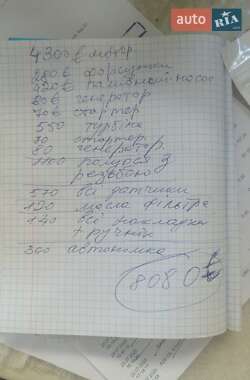 auto
RIA
.com
4300 € мотор
280 € форсунки
420 € паливний насос
80 € генератор
70 € стартер
550 турбіна
70 стартер
80 генератор
1100 полуося з
резвбою
570 всі датчики
120 масла фільтра
140 всі накладки
+ ручки
300 автономка
8080 €